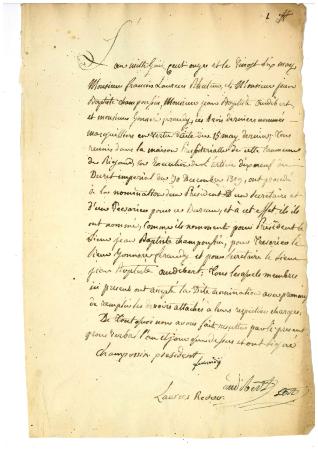 1
L'an mil huit cent onze et le vingt six may
Monsieur francois Laurens Recteur, et Monsieur Jean
Baptiste champossin, Monsieur jean Baptiste audibert
et monsieur honnoré, ces trois derniers nommés
marguilliers en vertu du 15 may dernier, tous
reunis dans la maison Presbiterialle de cette Commune
de en Execution de L'article dix neuf du
Decret imperial du 30 Decembre 1809, ont procedé
à la nomination d'un President d'un Secretaire et
d'un Tresorier pour ce Bureau, et a cet effet ils
ont nommé, Comme ils nomment pour President le
Sieur jean Baptiste champossin, pour Tresorier le
Sieur honnore et pour secretaire le Sieur
jean Baptiste audibert. Tous lesquels membres
ici present ont accepté la Dite nomination avec promesse
de remplir les devoirs attachés à leurs respectives charges,
De tout quoi nous avons fait resulter par le present
proces verbal l'an et jour que dessus et ont signé
Champossin president
audibert
Laurens Recteur